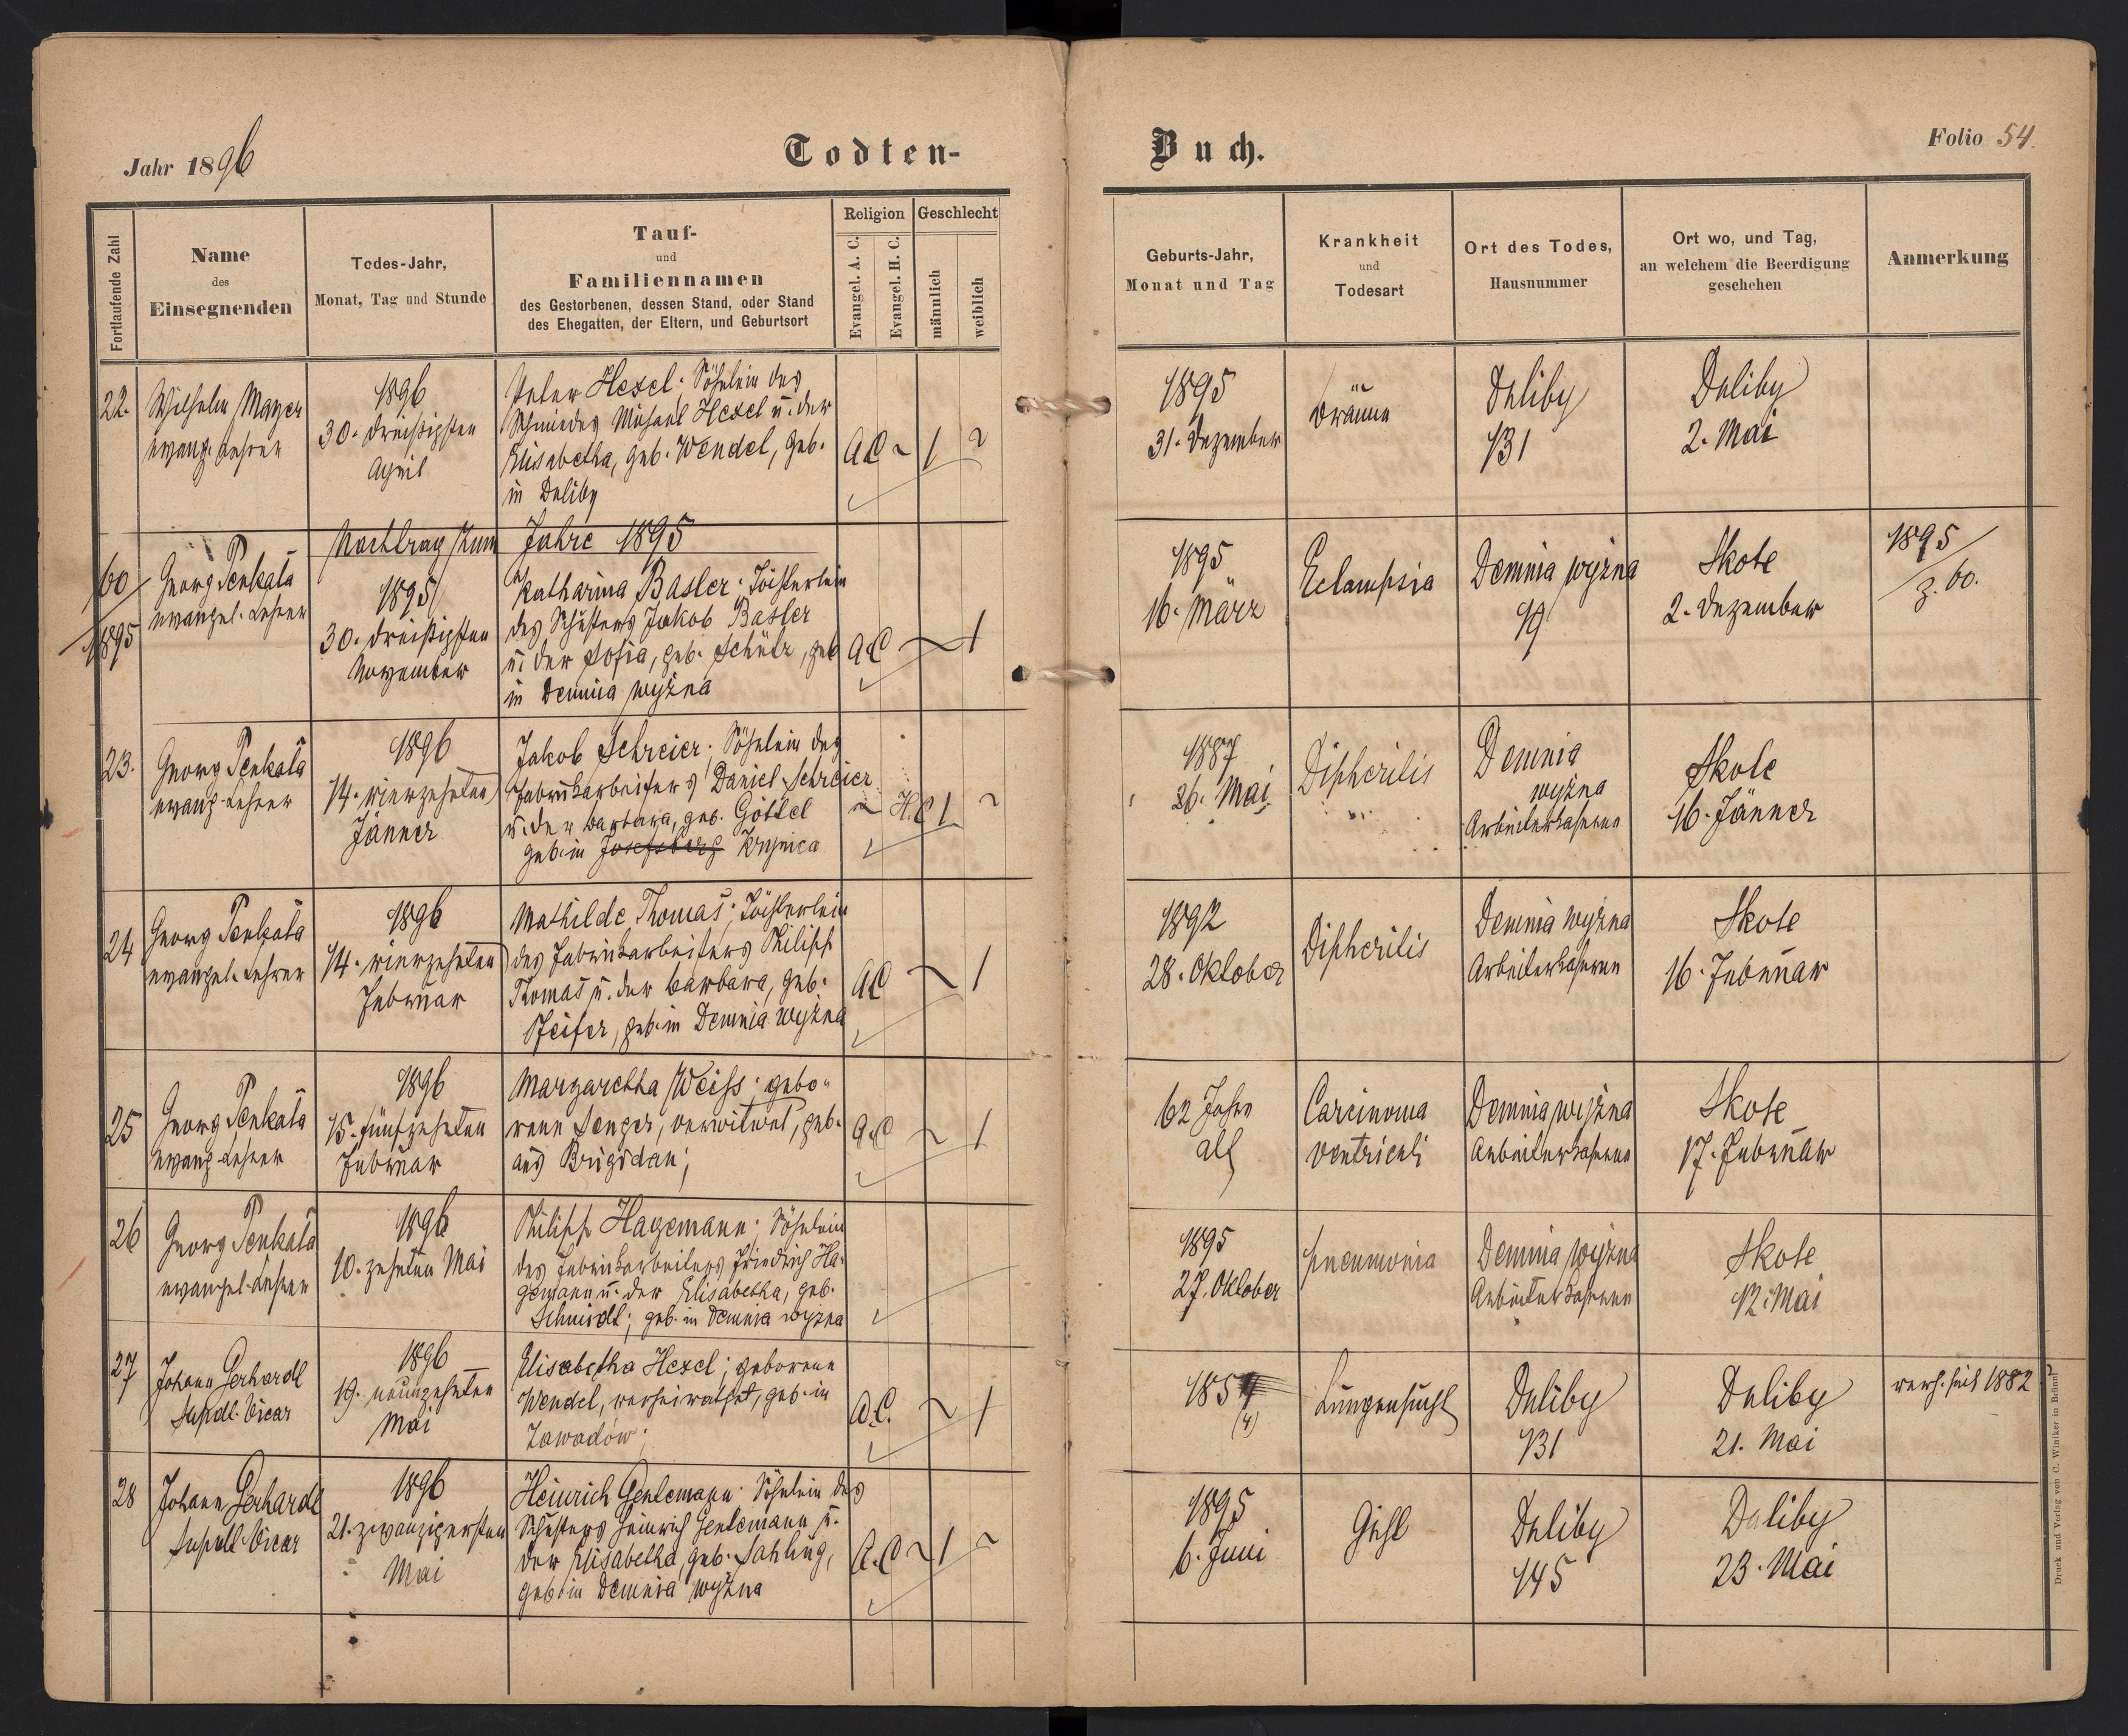 Jahr 1896
Todten-
Buch.
Folio 54.
Fortlaufende Zahl
Name
des
Einsegnenden
Todes-Jahr,
Monat, Tag und Stunde
Tauf-
und
Familiennamen
des Gestorbenen, dessen Stand, oder Stand
des Ehegatten, der Eltern, und Geburtsort
Religion
Evangel. A. C.
Evangel. H. C.
Geschlecht
männlich
weiblich
Geburts-Jahr,
Monat und Tag
Krankheit
und
Todesart
Ort des Todes,
Hausnummer
Ort wo, und Tag,
an welchem die Beerdigung
geschehen
Anmerkung
22.
Wilhelm Mayer
evang. Lehrer
1896
30. dreißigsten
April
Peter Hexel; Söhnlein des
Schmiedes Michael Hexel u. der
Elisabetha, geb. Wendel, geb.
in Deliby
A.C ~ 1 ~
1895
31. Dezember
Bräune
Deliby
131
Deliby
2. Mai
Nachtrag zum Jahre 1895
60/1895
Georg Penkala
evangel. Lehrer
1895
30. dreißigsten
November
Katharina Basler; Töchterlein
des Schusters Jakob Basler
u. der Sofia, geb. Schütz, geb
in Demnia wyżna
A.C ~ 1
1895
16. März
Eclampsia
Demnia wyżna
19
Skole
2. Dezember
1895
Z. 60.
23.
Georg Penkala
evang. Lehrer
1896
14. vierzehnten
Jänner
Jakob Schreier; Söhnlein des
Fabriksarbeiters Daniel Schreier
u. der Barbara, geb. Göttel
geb. in Josefsberg Krynica
~ H.C 1 ~
1887
26. Mai
Diphterilis
Demnia
wyżna
Arbeiterkaserne
Skole
16. Jänner
24
Georg Penkala
evangel. Lehrer
1896
14. vierzehnten
Februar
Mathilde Thomas; Töchterlein
des Fabriksarbeiters Philipp
Thomas u. der Barbara, geb.
Pfeifer, geb. in Demnia wyżna
A.C ~ 1
1892
28. Oktober
Diphterilis
Demnia wyżna
Arbeiterkaserne
Skole
16. Februar
25
Georg Penkala
evang. Lehrer
1896
15. fünfzehnten
Februar
Margaretha Weiss; gebo-
rene Senger, verwitwet, geb.
aus Brigidau;
A.C ~ 1
62 Jahre
alt
Carcinoma
ventriculi
Demnia wyżna
Arbeiterkaserne
Skole
17. Februar
26
Georg Penkala
evangel. Lehrer
1896
10. zehnten Mai
Philipp Hagemann; Söhnlein
des Fabriksarbeiters Friedrich Ha-
gemann u. der Elisabetha, geb.
Schmidt; geb. in Demnia wyżna
1895
27. Oktober
Pneumonia
Demnia wyżna
Arbeiterkaserne
Skole
12. Mai
27
Johann Gerhardt
Supdl. Vicar
1896
19. neunzehnten
Mai
Elisabetha Hexel; geborene
Wendel, verheirathet, geb. in
Zawadów;
A.C. ~ 1
1854
(4)
Lungensucht
Deliby
131
Deliby
21. Mai
verh. seit 1882
28
Johann Gerhardt
Supdl. Vicar
1896
21. zwanzigersten
Mai
Heinrich Gentemann; Söhnlein des
Schusters Heinrich Gentemann u.
der Elisabetha, geb. Sahling,
geb. in Demnia wyżna
A.C ~ 1 ~
1895
6. Juni
Gicht
Deliby
145
Deliby
23. Mai
Druck und Verlag von C. Winiker in Brünn